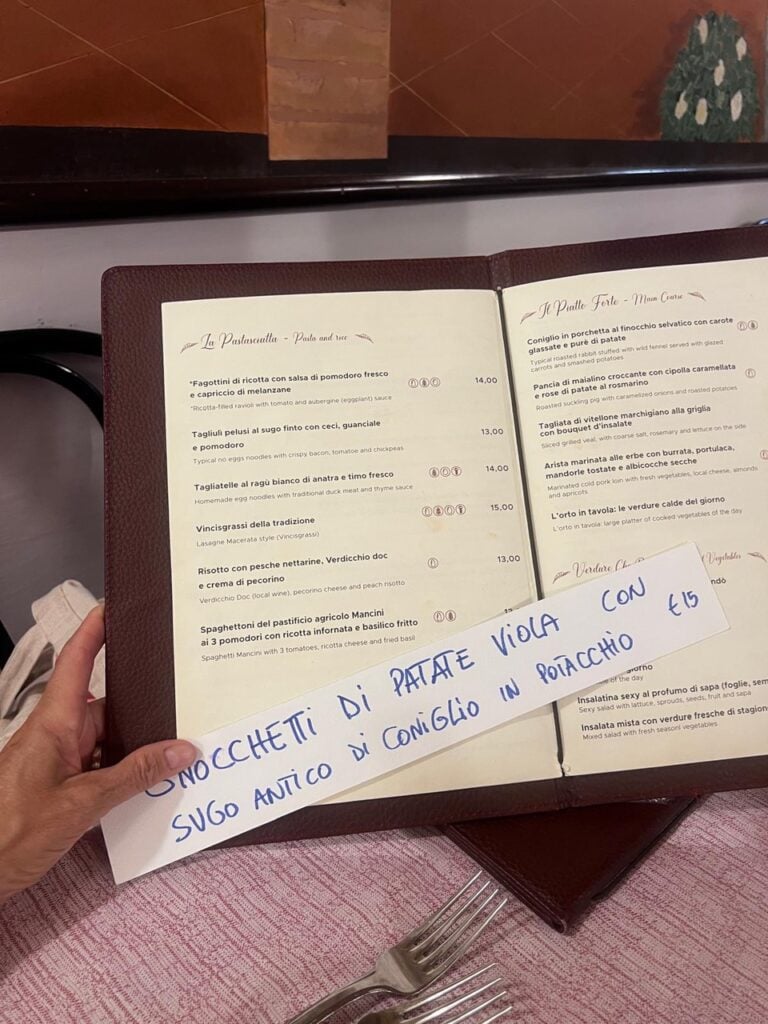 La Pastasciutta - Pasta and rice
*Fagottini di ricotta con salsa di pomodoro fresco
e capriccio di melanzane
14,00
*Ricotta-filled ravioli with tomato and aubergine (eggplant) sauce
Tagliuli pelusi al sugo finto con ceci, guanciale
e pomodoro
13,00
Typical no eggs noodles with crispy bacon, tomatoe and chickpeas
Tagliatelle al ragù bianco di anatra e timo fresco
14,00
Homemade egg noodles with traditional duck meat and thyme sauce
Vincisgrassi della tradizione
15,00
Lasagne Macerata style (Vincisgrassi)
Risotto con pesche nettarine, Verdicchio doc
e crema di pecorino
13,00
Verdicchio Doc (local wine), pecorino cheese and peach risotto
Spaghettoni del pastificio agricolo Mancini
ai 3 pomodori con ricotta infornata e basilico fritto
Spaghetti Mancini with 3 tomatoes, ricotta cheese and fried basil
Il Piatto Forte - Main Course
Coniglio in porchetta al finocchio selvatico con carote
glassate e purè di patate
Typical roasted rabbit stuffed with wild fennel served with glazed
carrots and smashed potatoes
Pancia di maialino croccante con cipolla caramellata
e rose di patate al rosmarino
Roasted suckling pig with caramelized onions and roasted potatoes
Tagliata di vitellone marchigiano alla griglia
con bouquet d'insalate
Sliced grilled veal, with coarse salt, rosemary and lettuce on the side
Arista marinata alle erbe con burrata, portulaca,
mandorle tostate e albicocche secche
Marinated cold pork loin with fresh vegetables, local cheese, almonds
and apricots
L'orto in tavola: le verdure calde del giorno
L'orto in tavola: large platter of cooked vegetables of the day
Verdure
Vegetables
of the day
Insalatina sexy al profumo di sapa (foglie,
Sexy salad with lettuce, sprouts, seeds, fruit and sapa
Insalata mista con verdure fresche di
Mixed salad with fresh season vegetables
GNOCCHETTI DI PATATE VIOLA CON
SUGO ANTICO DI CONIGLIO IN POTACCHIO €15